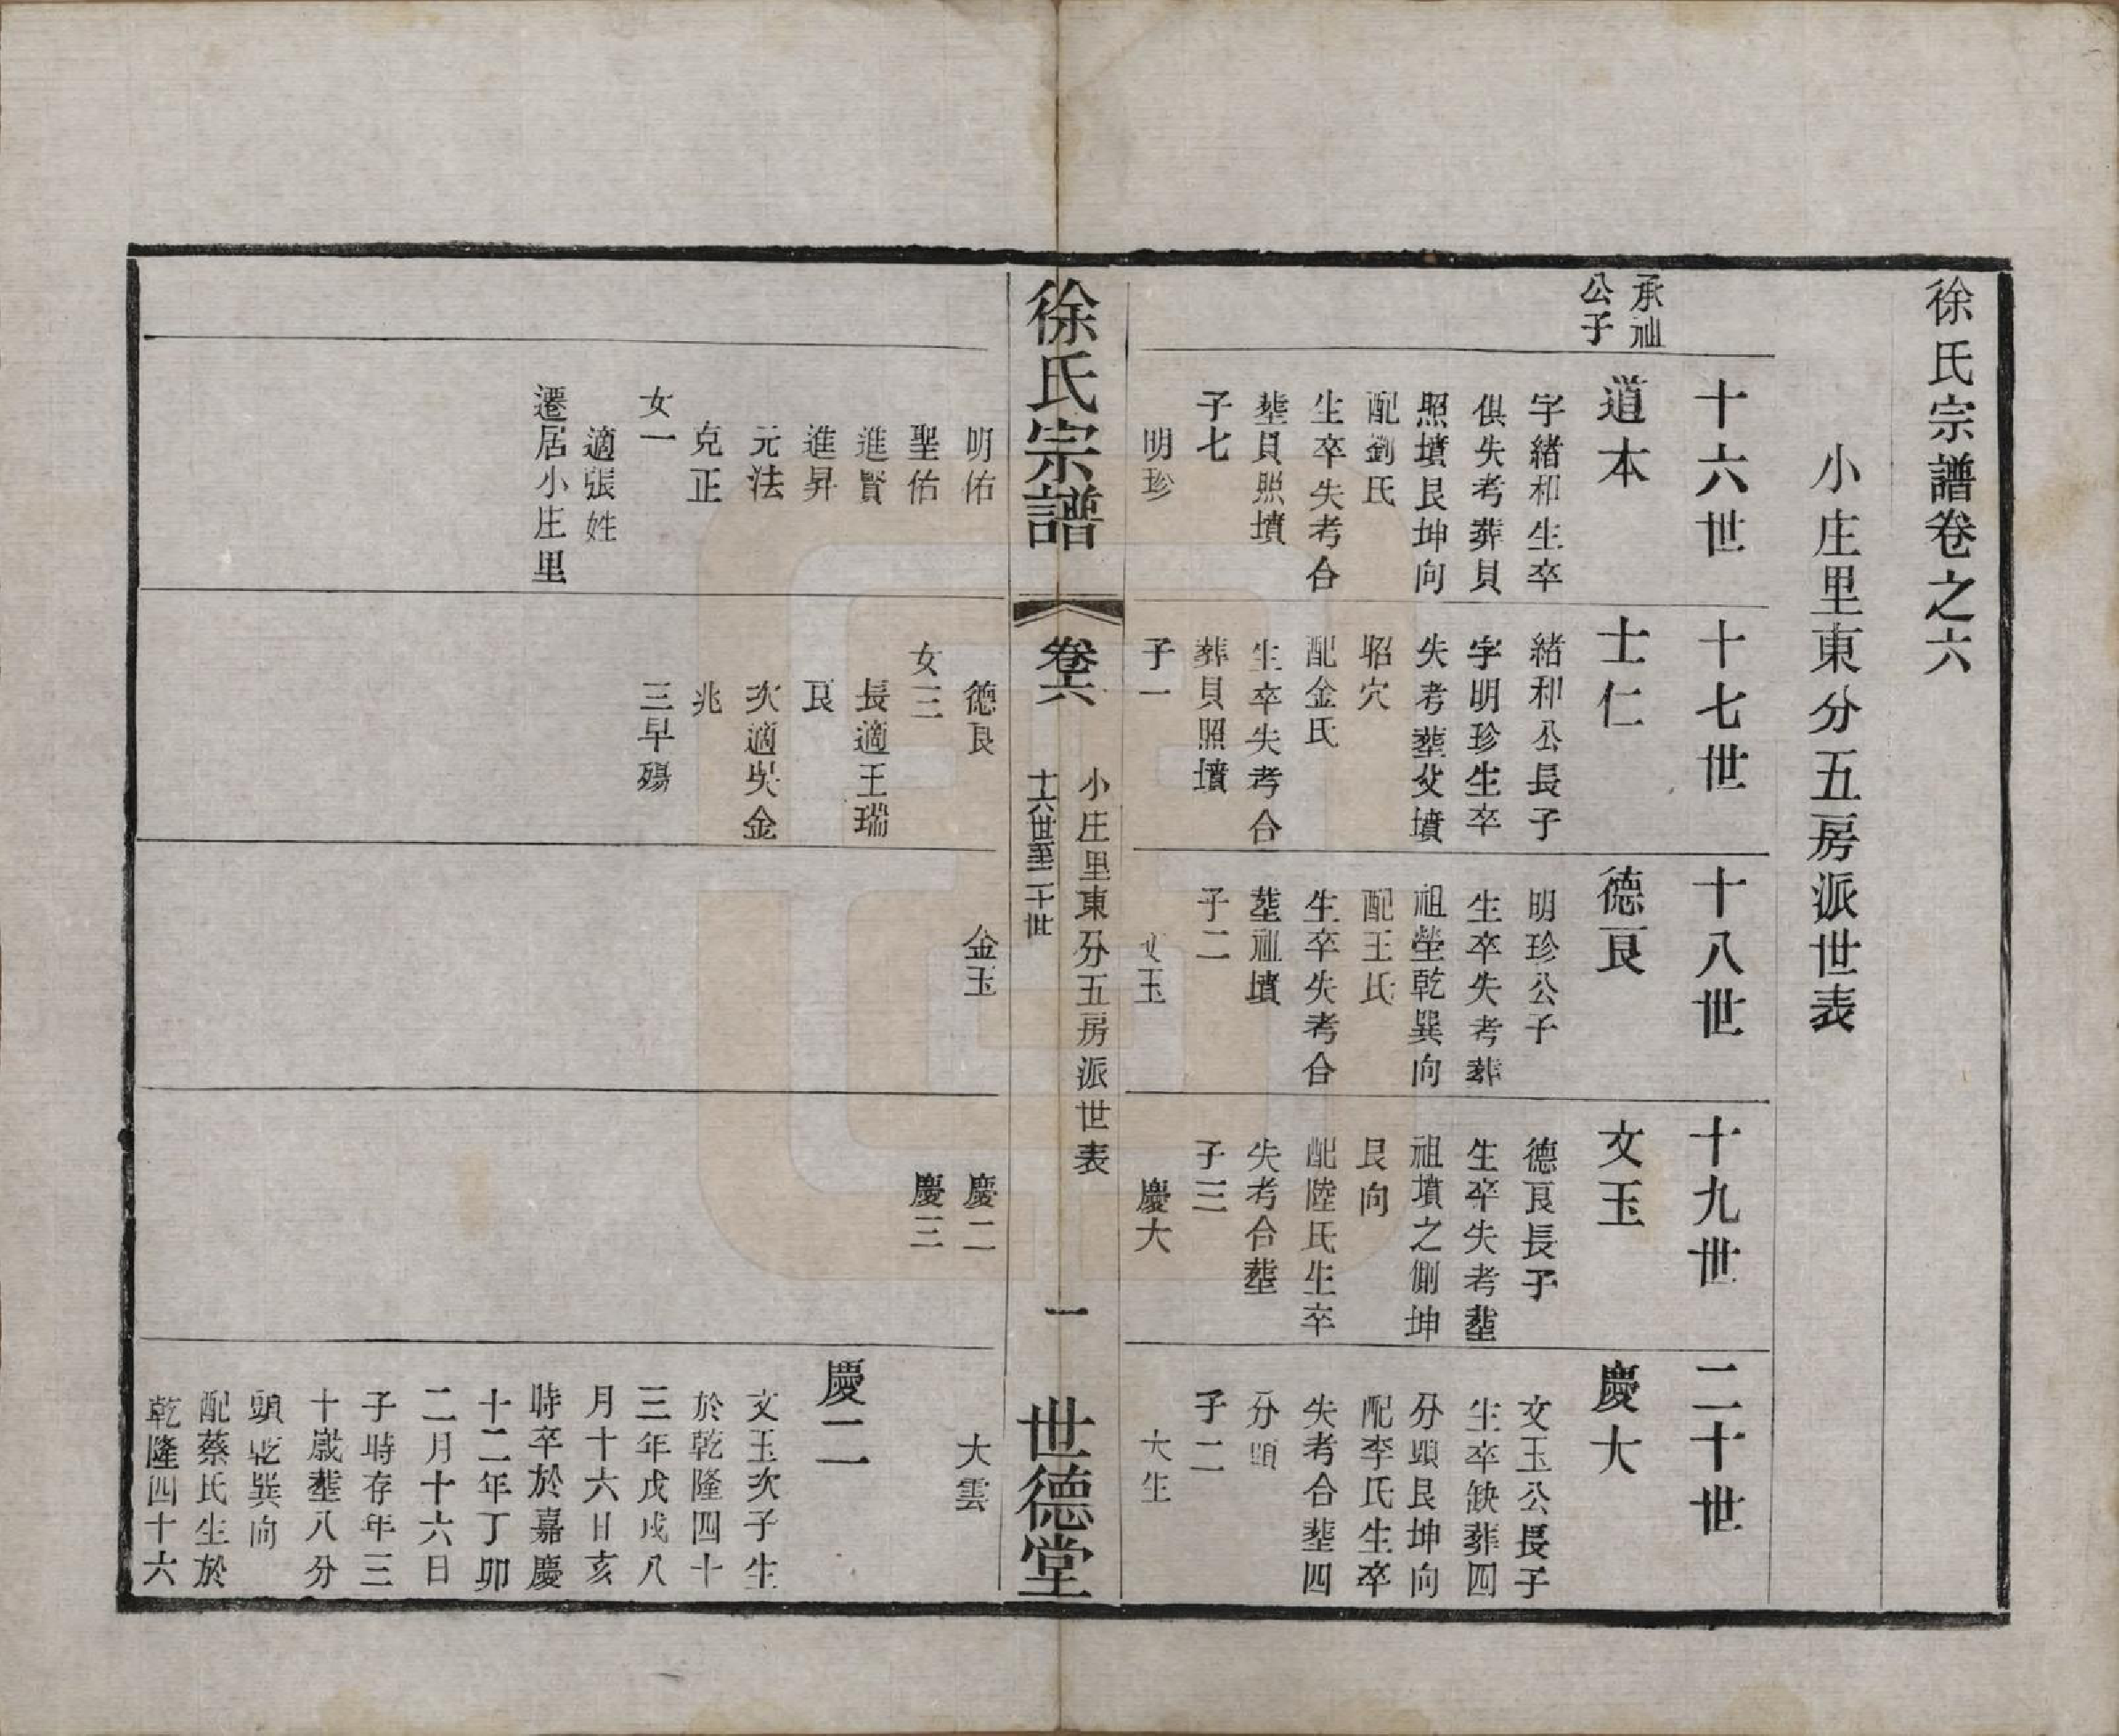 徐氏宗譜卷之六
小庄里東分五房派世表
承祉
公子
十六世
道本
字緒和生卒
俱失考葬貝
照墳艮坤向
配劉氏
生卒失考合
塟貝照墳
子七
明珍
十七世
士仁
緒和公長子
字明珍生卒
失考塟父墳
昭穴
配金氏
生卒失考合
葬貝照墳
子一
十八世
德良
明珍公子
生卒失考葬
祖塋乾巽向
配王氏
生卒失考合
塟祖墳
子二
文玉
十九世
文玉
德良長子
生卒失考塟
祖墳之側坤
艮向
配陸氏生卒
失考合塟
子三
慶大
二十世
慶大
文玉公長子
生卒缺葬四
分頭艮坤向
配李氏生卒
失考合塟四
分頭
子二
大生
徐氏宗譜
卷六
小庄里東分五房派世表
十六世至二十世
一
世德堂
明佑
聖佑
進賢
進昇
元法
克正
女一
適張姓
遷居小庄里
德良
女三
長適王瑞
良
次適吳金
兆
三早殤
金玉
慶二
慶三
大雲
慶二
文玉次子生
於乾隆四十
三年戊戌八
月十六日亥
時卒於嘉慶
十二年丁卯
二月十六日
子時存年三
十歲塟八分
頭乾巽向
配蔡氏生於
乾隆四十六